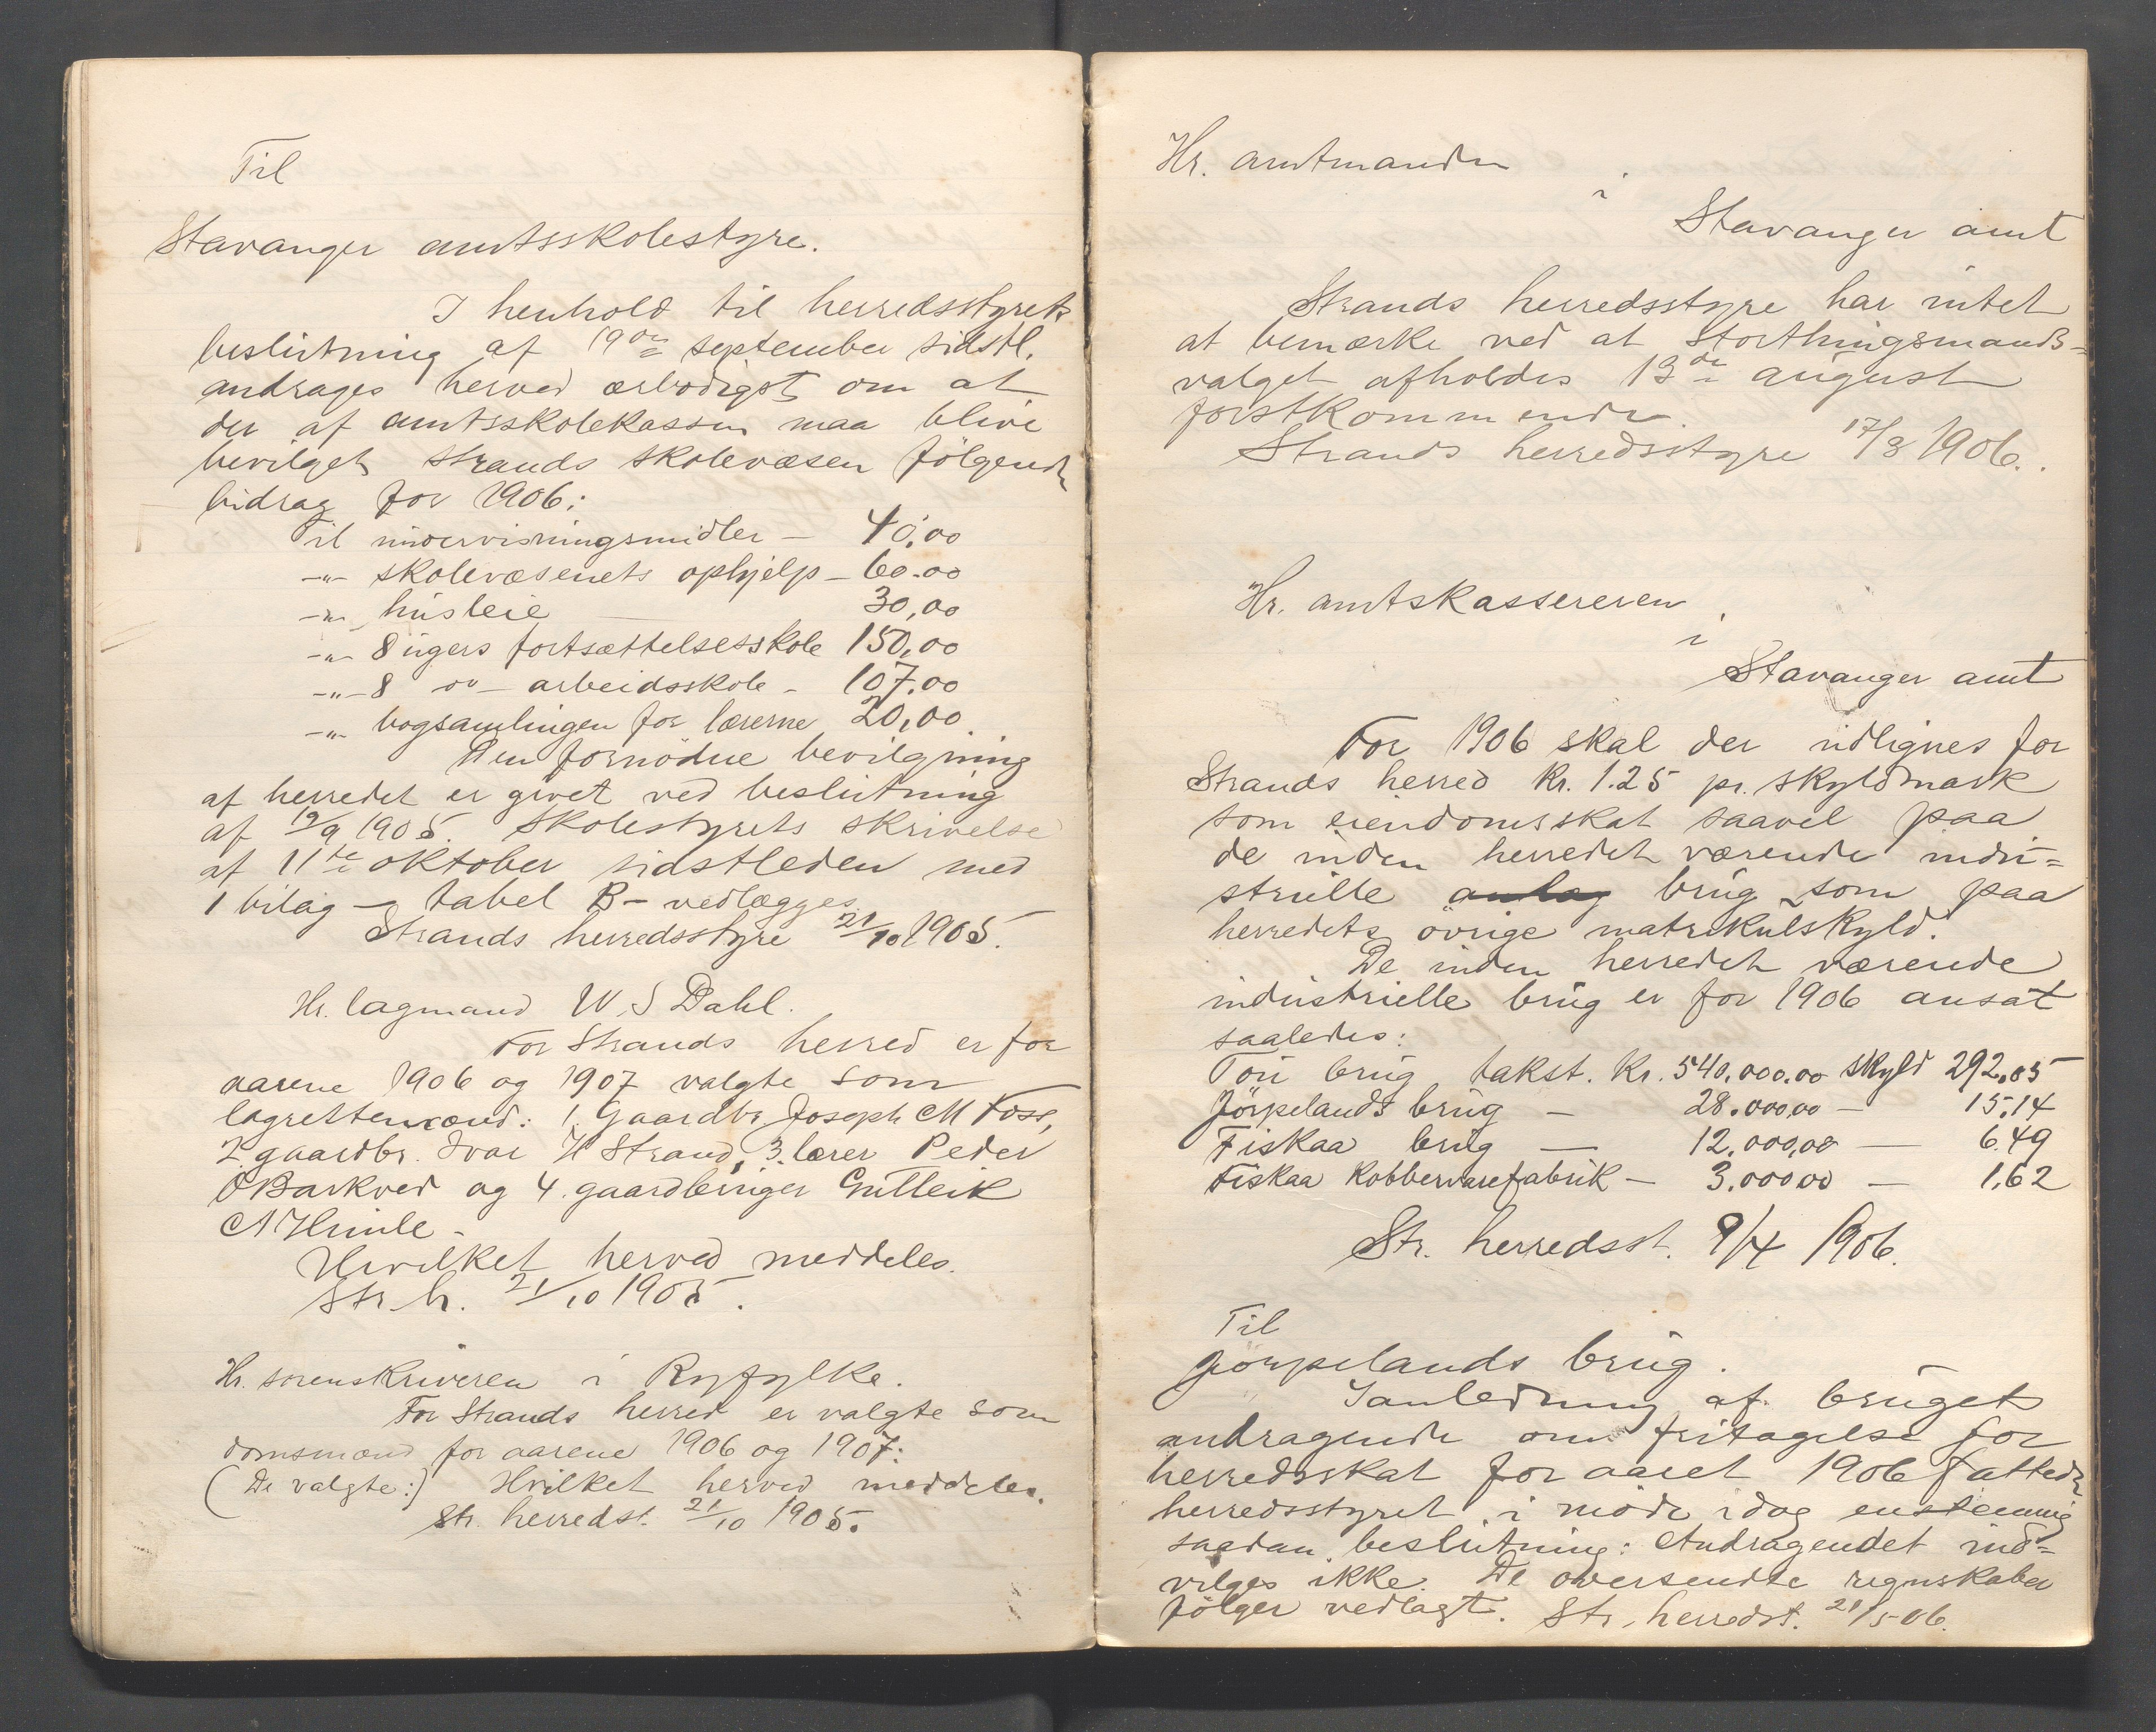 Til
Stavanger amtsskolestyre.
I henhold til herredsstyrets
beslutning af 19de september sidstl.
andrages herved ærbødigst om at
der af amtsskolekassen maa blive
bevilget Strands skolevæsen følgende
bidrag for 1906:
Til undervisningsmidler – 40,00
–"– skolevæsenets ophjelp – 60.00
–"– husleie – 30,00
–"– 8 ugers fortsættelsesskole 150,00
–"– 8 –"– arbeidsskole – 107.00
–"– bogsamlingen for lærerne 20,00.
Den fornødne bevilgning
af herredet er givet ved beslutning
af 19/9 1905. Skolestyrets skrivelse
af 11te oktober sidstleden med
1 bilag – tabel B – vedlægges.
Strands herredsstyre 21/10 1905.
Hr. lagmand W. S Dahl.
For Strands herred er for
aarene 1906 og 1907 valgte som
lagrettemænd: 1. Gaardbr. Joseph M Foss,
2. gaardbr. Ivar H Strand, 3. lærer Peder
O Barkved og 4. gaardbruger Gutleik
A Himle –
Hvilket herved meddeles.
Str. h. 21/10 1905.
Hr. sorenskriveren i Ryfylke.
For Strands herred er valgte som
domsmænd for aarene 1906 og 1907:
(De valgte:) Hvilket herved meddeles.
Str. herredst. 21/10 1905.
Hr. amtmanden
i
Stavanger amt
Strands herredsstyre har intet
at bemærke ved at Storthingsmands=
valget afholdes 13de august
førstkommende.
Strands herredsstyre 17/3 1906.
Hr. amtskassereren
i
Stavanger amt
For 1906 skal der udlignes for
Strands herred kr. 1.25 pr. skyldmark
som eiendomsskat saavel paa
de inden herredet værende indu=
strielle anlæg brug som paa
herredets øvrige matrikulskyld.
De inden herredet værende
industrielle brug er for 1906 ansat
saaledes:
Tøu brug takst. kr. 540,000.00 skyld 292.05
Jørpelands brug – 28.000,00 – 15.14
Fiskaa brug – 12,000,00 – 6.49
Fiskaa kobbervarefabrik – 3.000,00 – 1,62
Str. herredsst. 9/4 1906.
Til
Jørpelands brug.
I anledning af bruget
andragende om fritagelse for
herredsskat for aaret 1906 fattede
herredsstyret i møde idag enstemmig
saadan beslutning: Andragendet ind=
vilges ikke. De oversendte regnskaber
følger vedlagt. Str. herredst. 21/5 06.